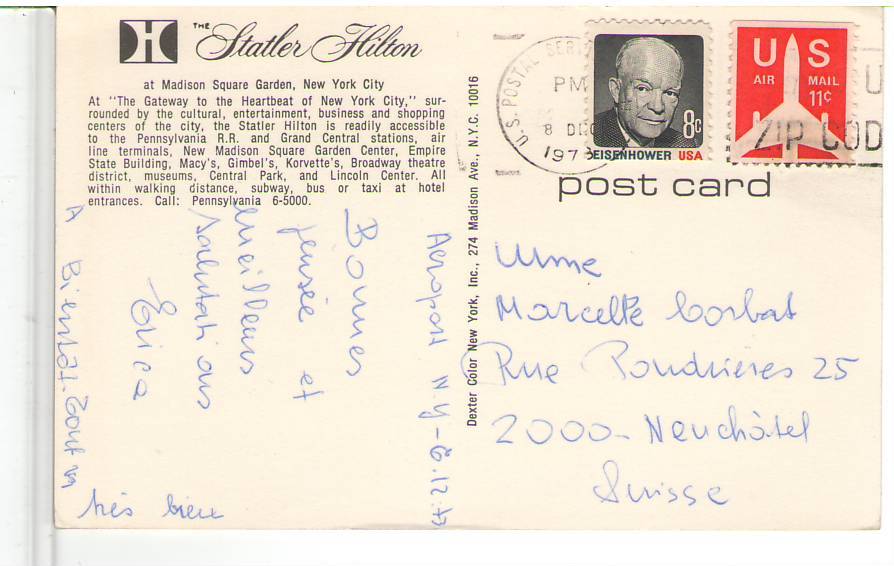 THE Statler Hilton
at Madison Square Garden, New York City
At "The Gateway to the Heartbeat of New York City," sur-
rounded by the cultural, entertainment, business and shopping
centers of the city, the Statler Hilton is readily accessible
to the Pennsylvania R.R. and Grand Central stations, air
line terminals, New Madison Square Garden Center, Empire
State Building, Macy's, Gimbel's, Korvette's, Broadway theatre
district, museums, Central Park, and Lincoln Center. All
within walking distance, subway, bus or taxi at hotel
entrances. Call: Pennsylvania 6-5000.
Aeroport N.Y - 6.12.73
Bonnes
pensée et
meilleurs
salutations
Erica
A Bientôt. Tout va
très bien
Dexter Color New York, Inc., 274 Madison Ave., N.Y.C. 10016
U.S. POSTAL SER
PM
8 DEC
1973
EISENHOWER USA
8c
US
AIR MAIL
11¢
U
ZIP COD
post card
Mme
Marcelle Corbat
Rue Poudrieres 25
2000 - Neuchâtel
Suisse